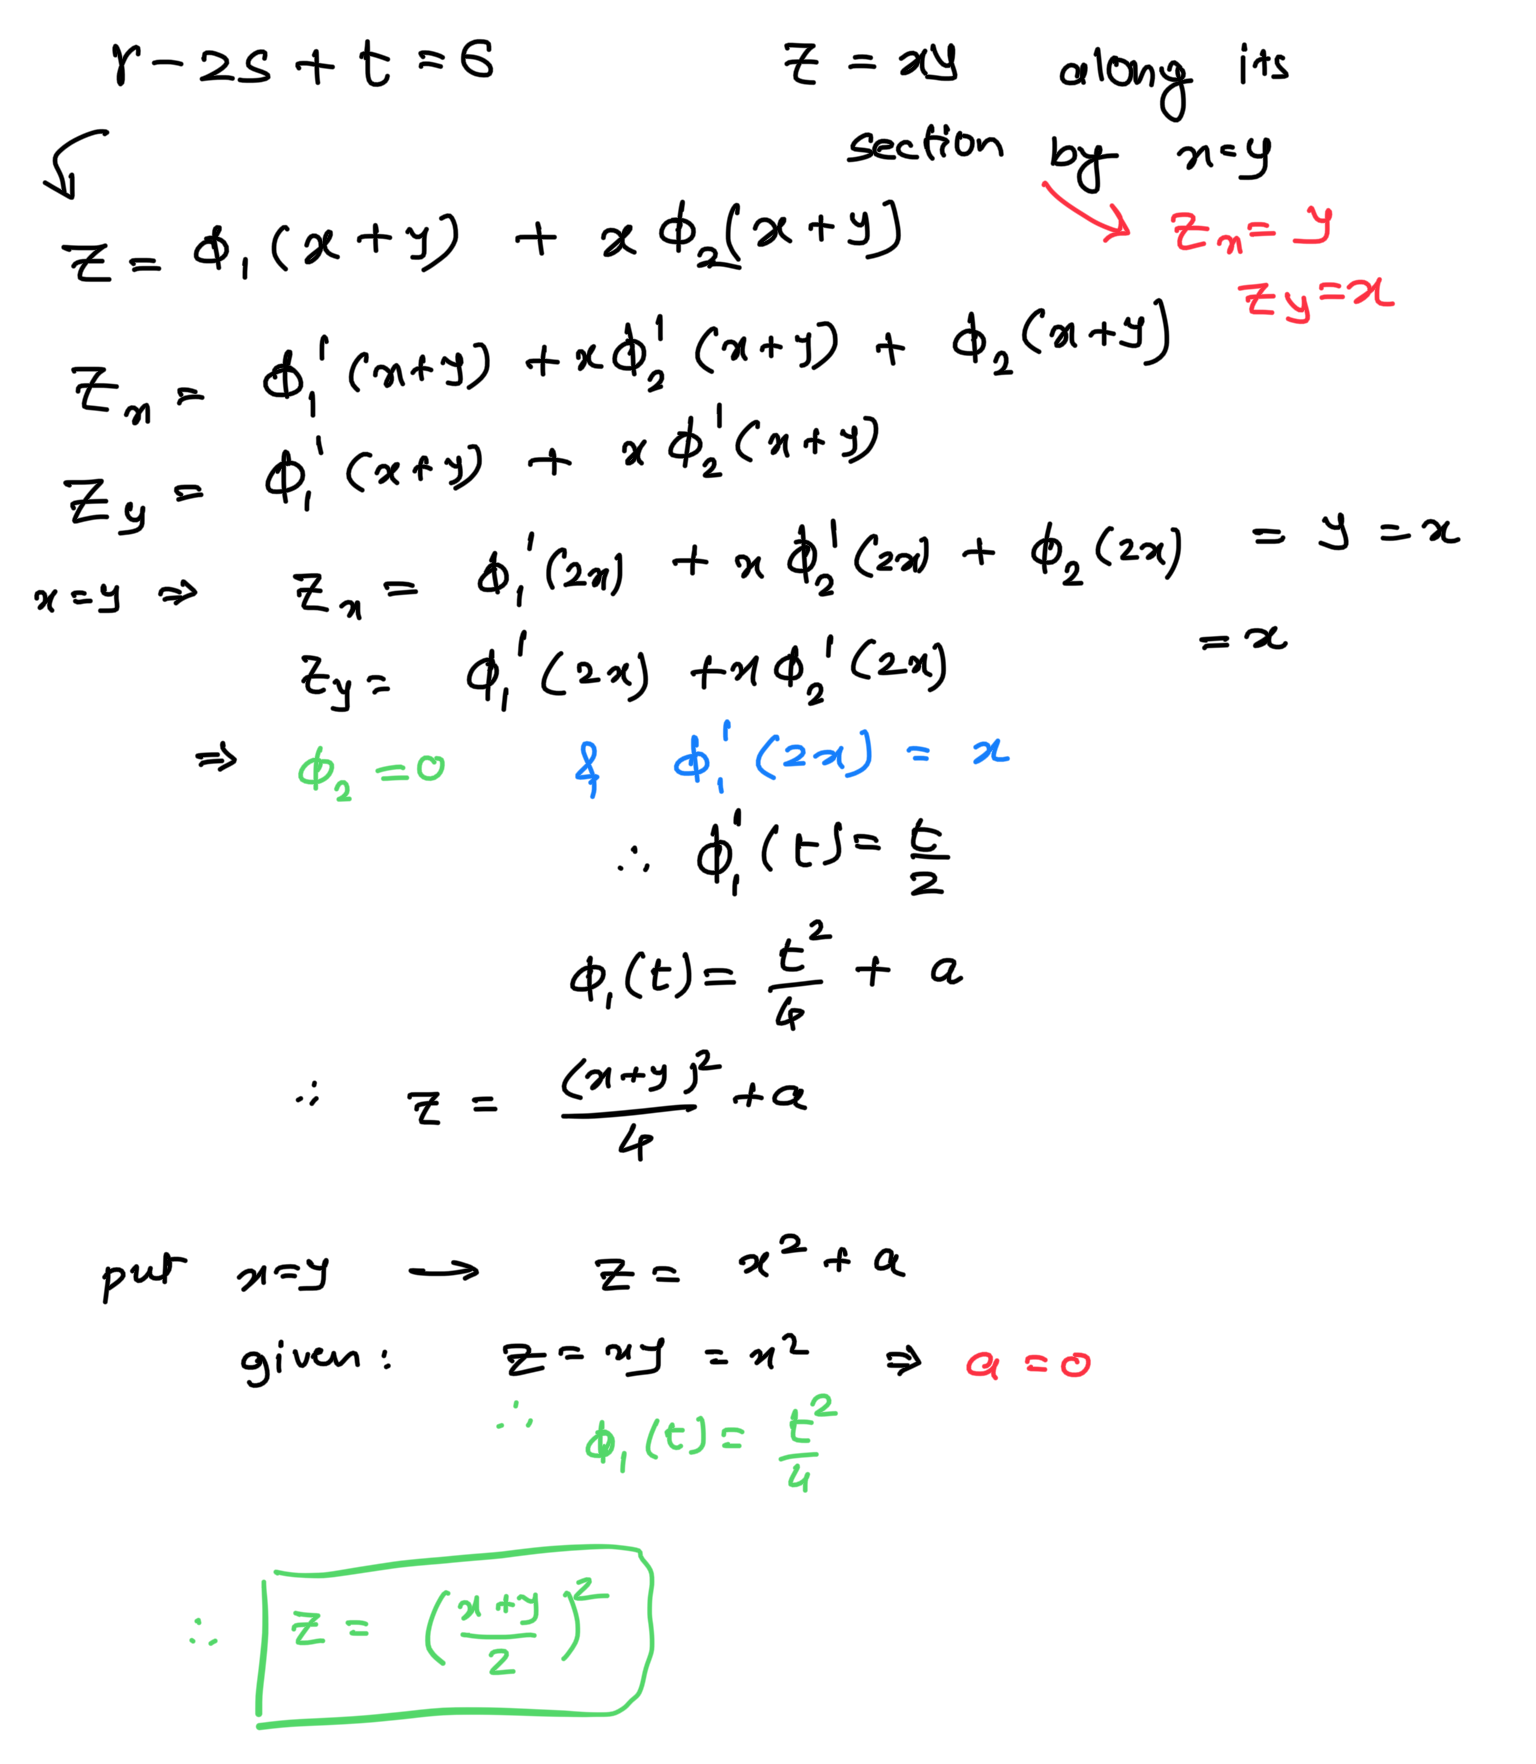 r - 2s + t = 6
z = xy along its
section by x=y
z_x = y
z_y = x
z = ϕ₁(x+y) + x ϕ₂(x+y)
z_x = ϕ₁'(x+y) + xϕ₂'(x+y) + ϕ₂(x+y)
z_y = ϕ₁'(x+y) + xϕ₂'(x+y)
x=y ⇒ z_x = ϕ₁'(2x) + xϕ₂'(2x) + ϕ₂(2x) = y = x
z_y = ϕ₁'(2x) + xϕ₂'(2x) = x
⇒ ϕ₂ = 0 & ϕ₁'(2x) = x
∴ ϕ₁'(t) = t/2
ϕ₁(t) = t²/4 + a
∴ z = (x+y)²/4 + a
put x=y → z = x² + a
given: z = xy = x² ⇒ a = 0
∴ ϕ₁(t) = t²/4
∴ z = ((x+y)/2)²